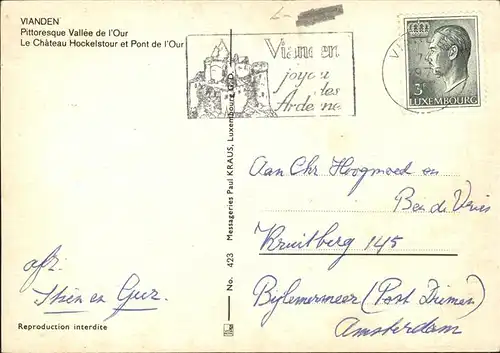 VIANDEN
Pittoresque Vallée de l'Our
Le Château Hockelstour et Pont de l'Our
Vianden
joyau
des
Ardennes
3F
LUXEMBOURG
Aan Chr Hoogmoed en
Ben de Vries
Kruitberg 145
Bijlemermeer (Post Diemen)
Amsterdam
afz.
Stien en Guz.
Reproduction interdite
No. 423 Messageries Paul KRAUS, Luxembourg G.D.